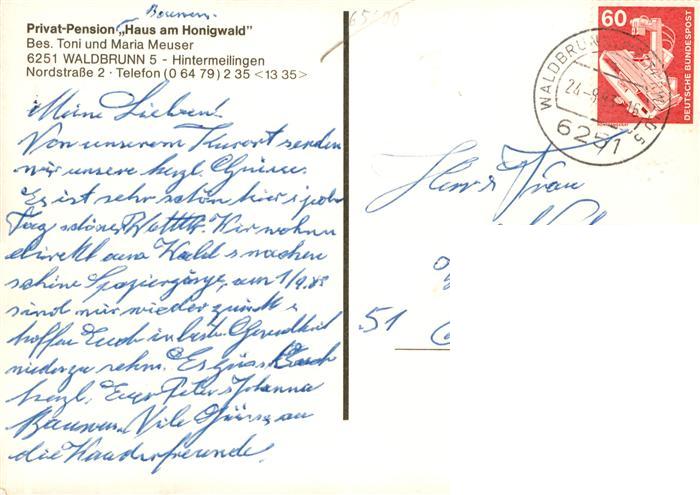 Bauwens.
Privat-Pension „Haus am Honigwald"
Bes. Toni und Maria Meuser
6251 WALDBRUNN 5 - Hintermeilingen
Nordstraße 2 · Telefon (0 64 79) 2 35 <13 35>
Meine Lieben!
Von unserem Kurort senden
wir unsere herzl. Grüsse.
Es ist sehr schön hier, jeden
Tag schönes Wetter. Wir wohnen
direkt am Wald & machen
schöne Spaziergänge, am 1/9.83
sind wir wieder zurück &
hoffen Euch in bester Gesundheit
wiederzusehn. Es grüsst Euch
herzl. Euer Peter & Johanna
Bauwens. Viele Grüsse an
die Wanderfreunde.
60
DEUTSCHE BUNDESPOST
WALDBRUNN
24.-8.83-16
6251
Herr & Frau
51